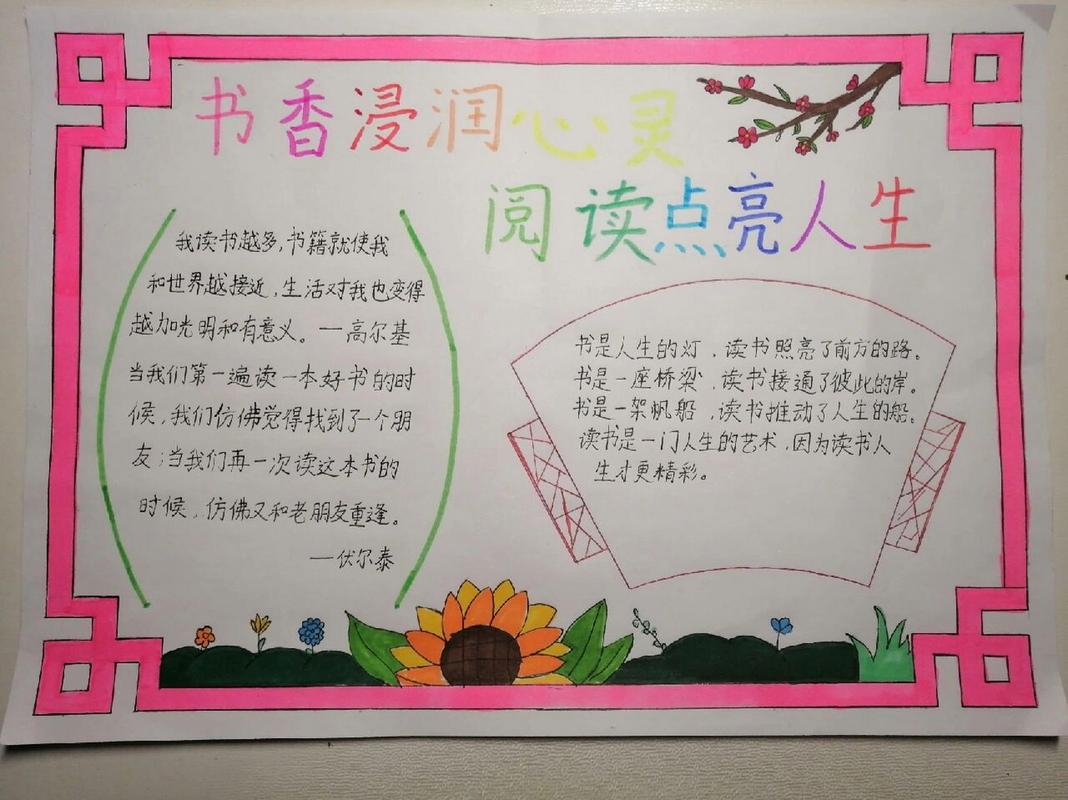 书香浸润心灵
阅读点亮人生
我读书越多,书籍就使我
和世界越接近,生活对我也变得
越加光明和有意义。—高尔基
当我们第一遍读一本好书的时
候,我们仿佛觉得找到了一个朋
友;当我们再一次读这本书的
时候,仿佛又和老朋友重逢。
—伏尔泰
书是人生的灯,读书照亮了前方的路。
书是一座桥梁,读书接通了彼此的岸。
书是一架帆船,读书推动了人生的船。
读书是一门人生的艺术,因为读书人
生才更精彩。